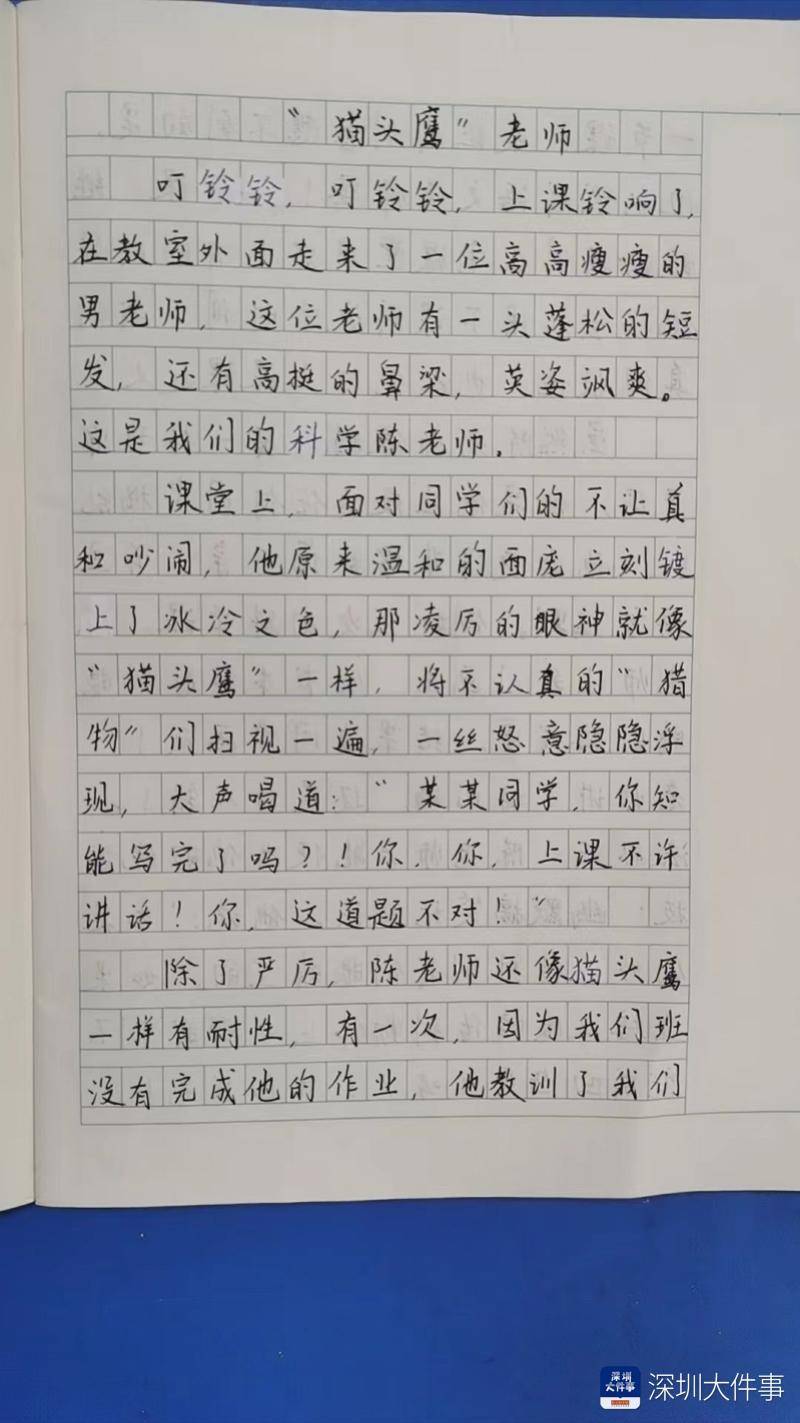 “猫头鹰”老师
叮铃铃，叮铃铃，上课铃响了，
在教室外面走来了一位高高瘦瘦的
男老师，这位老师有一头蓬松的短
发，还有高挺的鼻梁，英姿飒爽。
这是我们的科学陈老师。
课堂上，面对同学们的不让真
和吵闹，他原来温和的面庞立刻镀
上了冰冷之色，那凌厉的眼神就像
“猫头鹰”一样，将不认真的“猎
物”们扫视一遍，一丝怒意隐隐浮
现，大声喝道：“某某同学，你知
能写完了吗？！你，你，上课不许
讲话！你，这道题不对！”
除了严厉，陈老师还像猫头鹰
一样有耐性，有一次，因为我们班
没有完成他的作业，他教训了我们
深圳大件事
深圳大件事